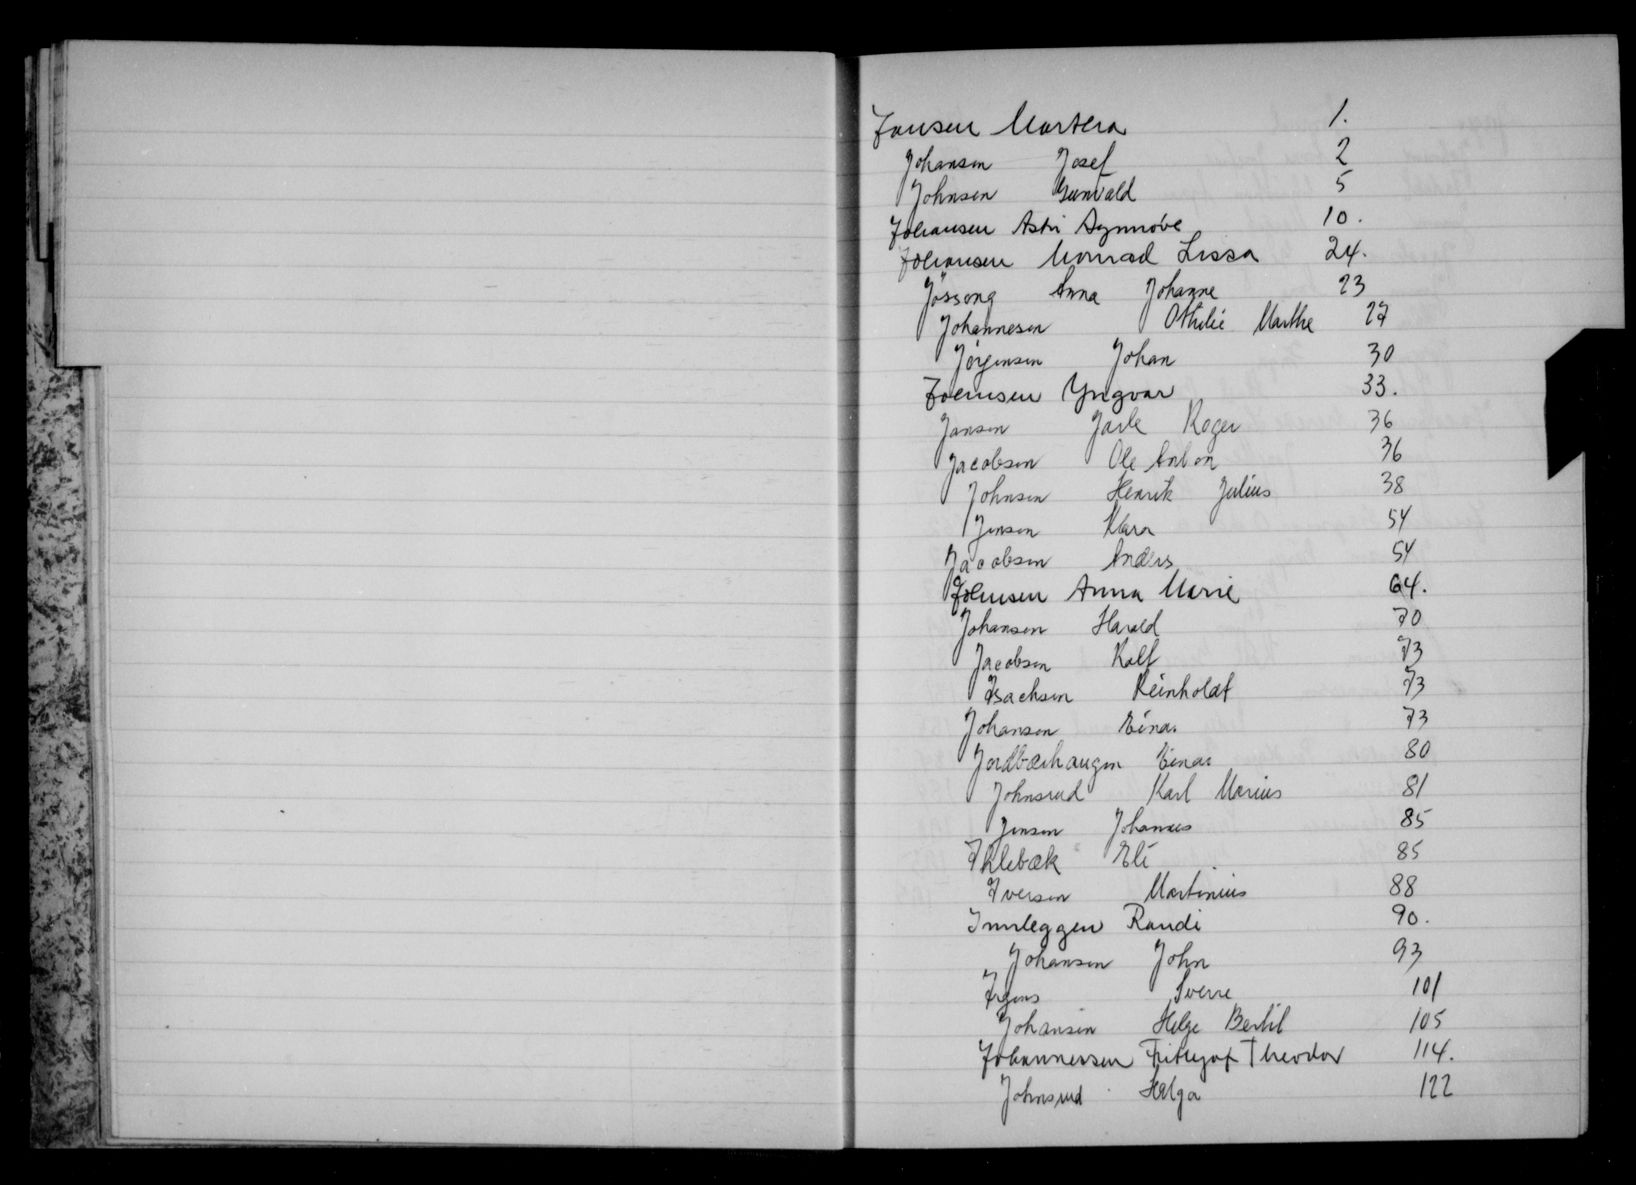 Jansen Marthea 1.
Johansen Josef 2
Johnsen Gunvald 5
Johansen Astri Synnöve 10.
Johansen Monrad Lissa 24.
Jössang Anna Johanne 23
Johannesen Othilie Marthe 27
Jörgensen Johan 30
Joensen Yngvar 33.
Jansen Jarle Roger 36
Jacobsen Ole Anton 36
Johnsen Henrik Julius 38
Jensen Klara 54
Jacobsen Anders 54
Johnsen Anna Marie 64.
Johansen Harald 70
Jacobsen Rolf 73
Isachsen Reinholdt 73
Johansen Einar 73
Jordbærhaugen Einar 80
Johnsrud Karl Marius 81
Jensen Johannes 85
Ihlebæk Eli 85
Iversen Martinius 88
Innleggen Randi 90.
Johansen John 93
Irgens Sverre 101
Johansen Helge Bertil 105
Johannessen Frithjof Theodor 114.
Johnsrud Helga 122